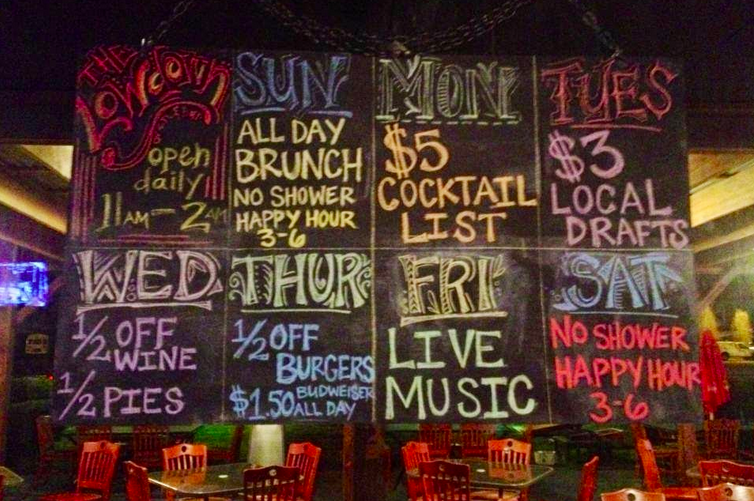 THE
LOWDOWN
open
daily
11AM-2AM
SUN
ALL DAY
BRUNCH
NO SHOWER
HAPPY HOUR
3-6
MON
$5
COCKTAIL
LIST
TUES
$3
LOCAL
DRAFTS
WED
1/2 OFF
WINE
1/2 PIES
THUR
1/2 OFF
BURGERS
$1.50 BUDWEISER
ALL DAY
FRI
LIVE
MUSIC
SAT
NO SHOWER
HAPPY HOUR
3-6